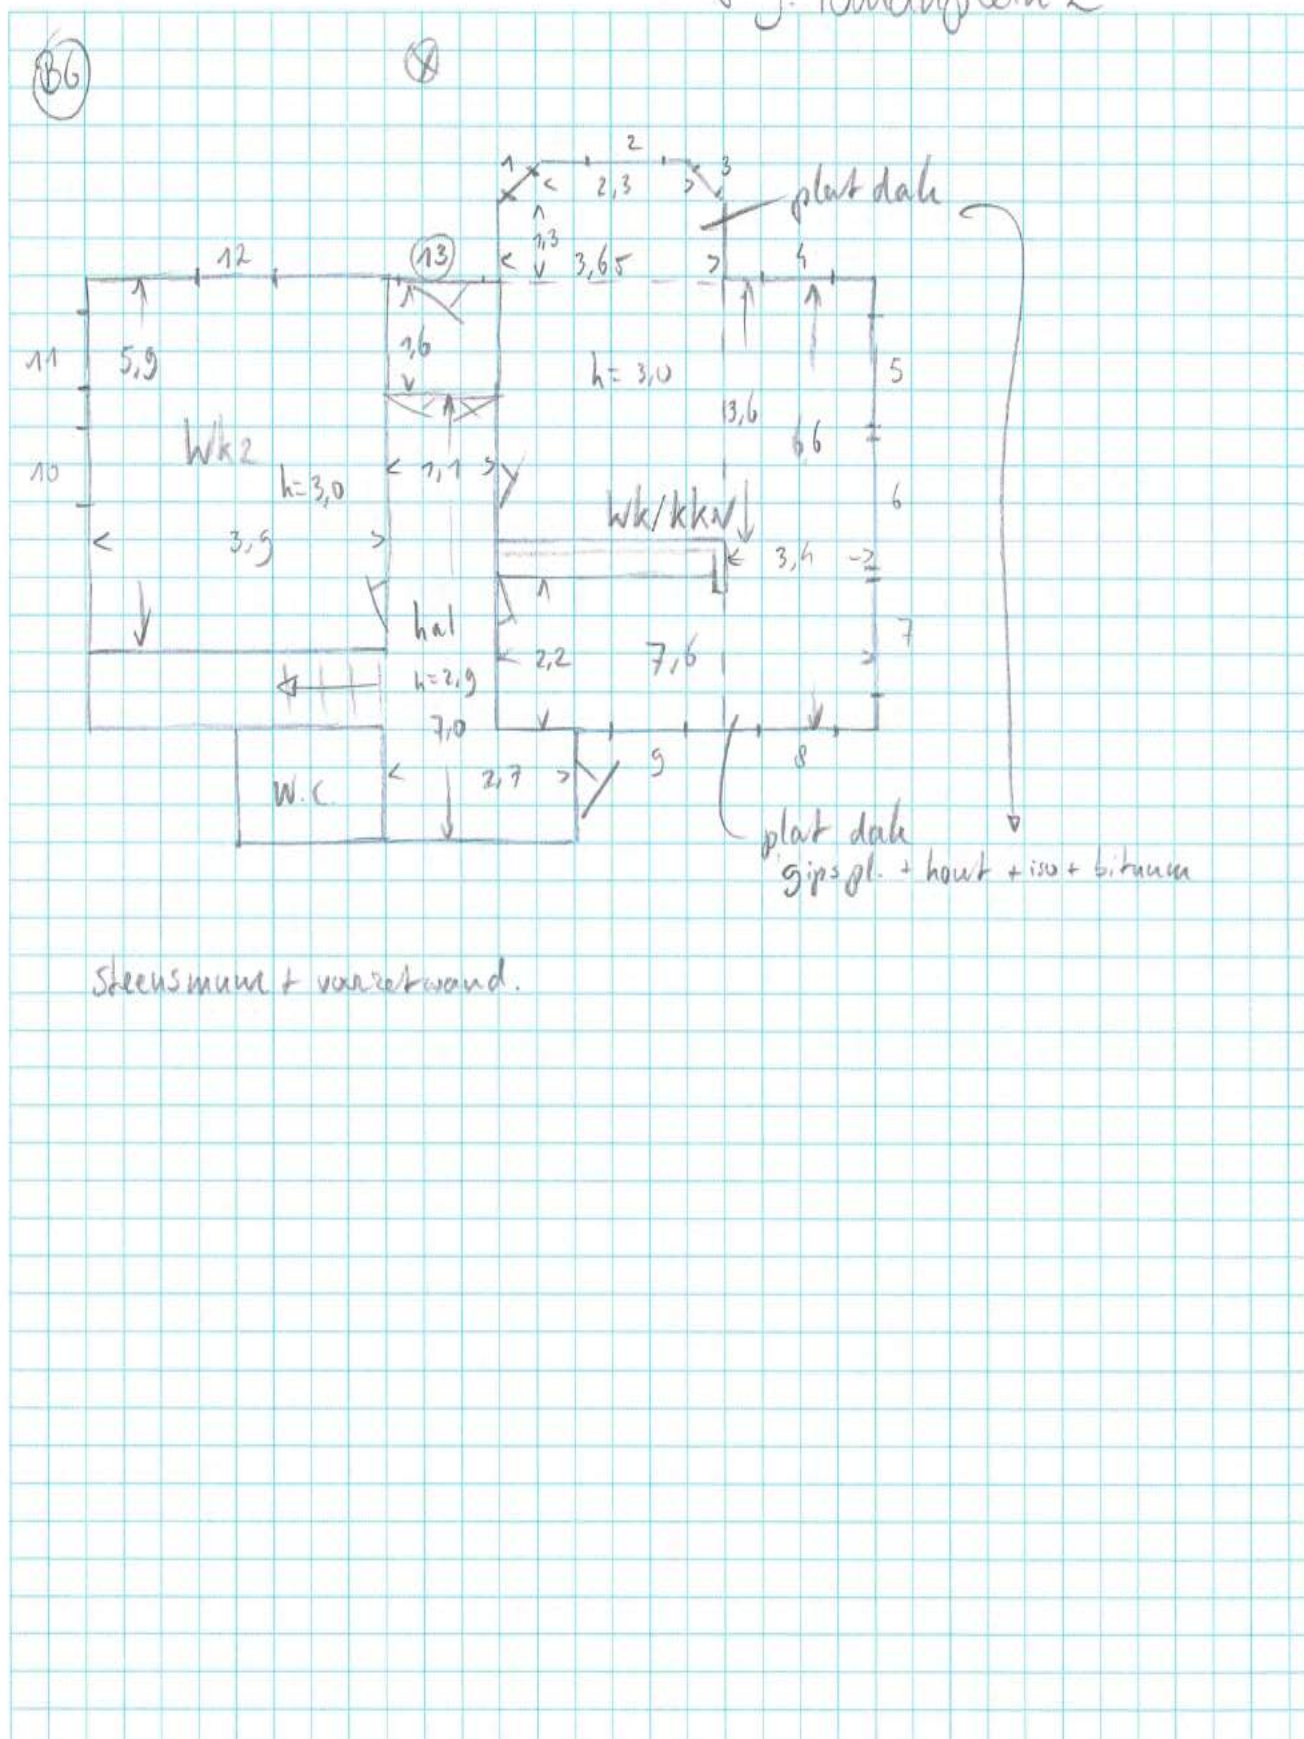 BG
X
1
2
3
2,3
plat dak
1,3
3,65
12
13
4
11
5,9
1,6
h= 3,0
5
Wk2
3,6
6,6
10
h=3,0
1,1
6
Wk/kkn
3,9
3,4
hal
7
h=2,9
2,2
7,6
7,0
W.C.
2,7
9
8
plat dak
gipspl. + hout + iso + bitumen
Steensmuur + voorzetwand.